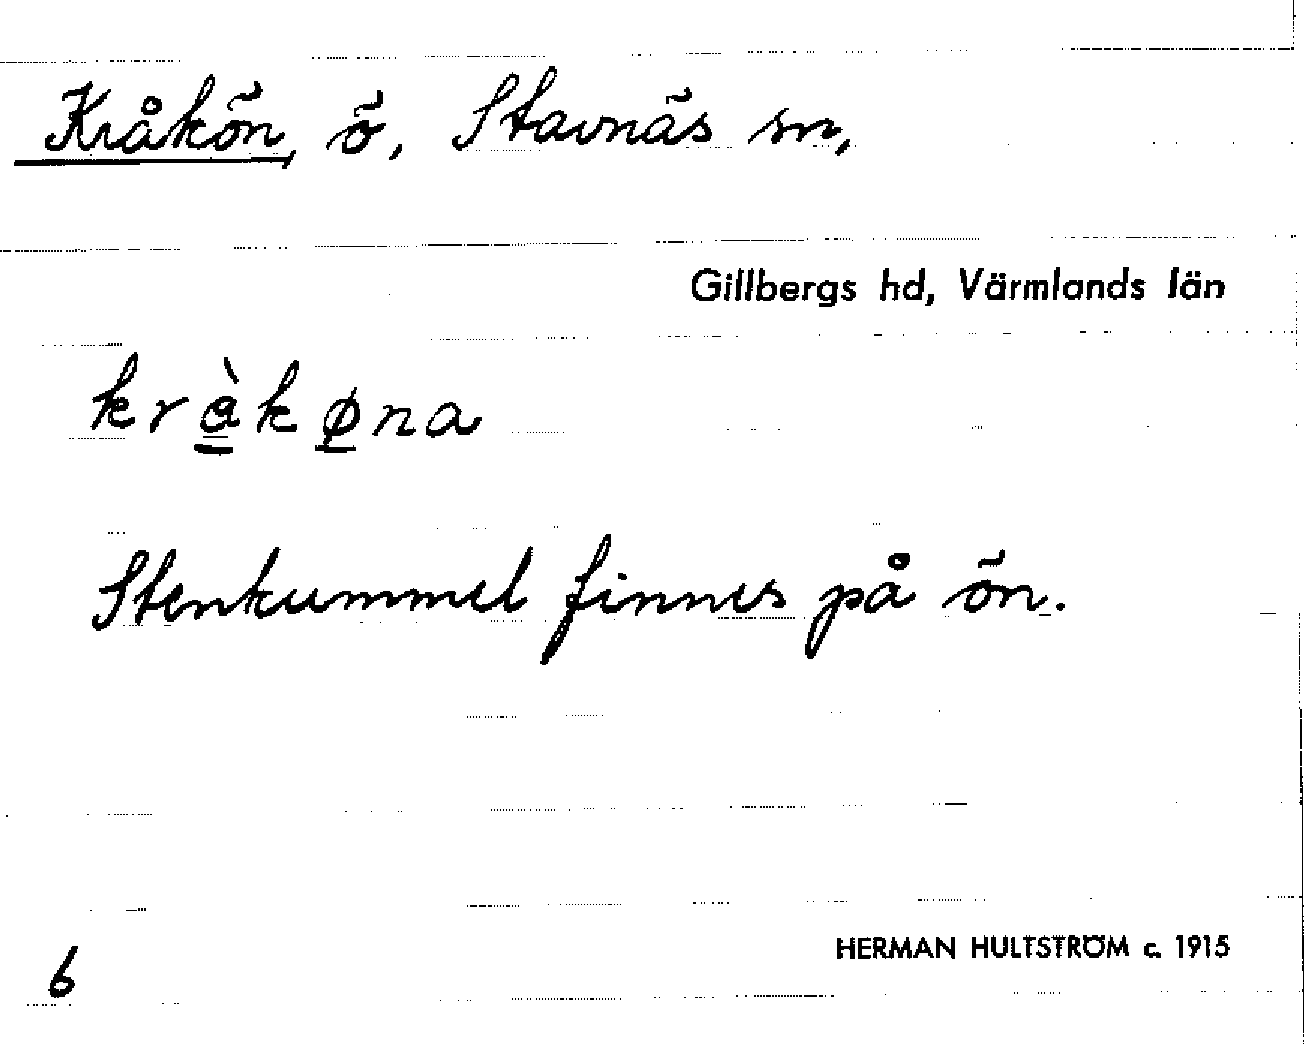 Kråkön, ö, Stavnäs sn,
Gillbergs hd, Värmlands län
kràkøna
Stenkummel finnes på ön.
HERMAN HULTSTRÖM c. 1915
6